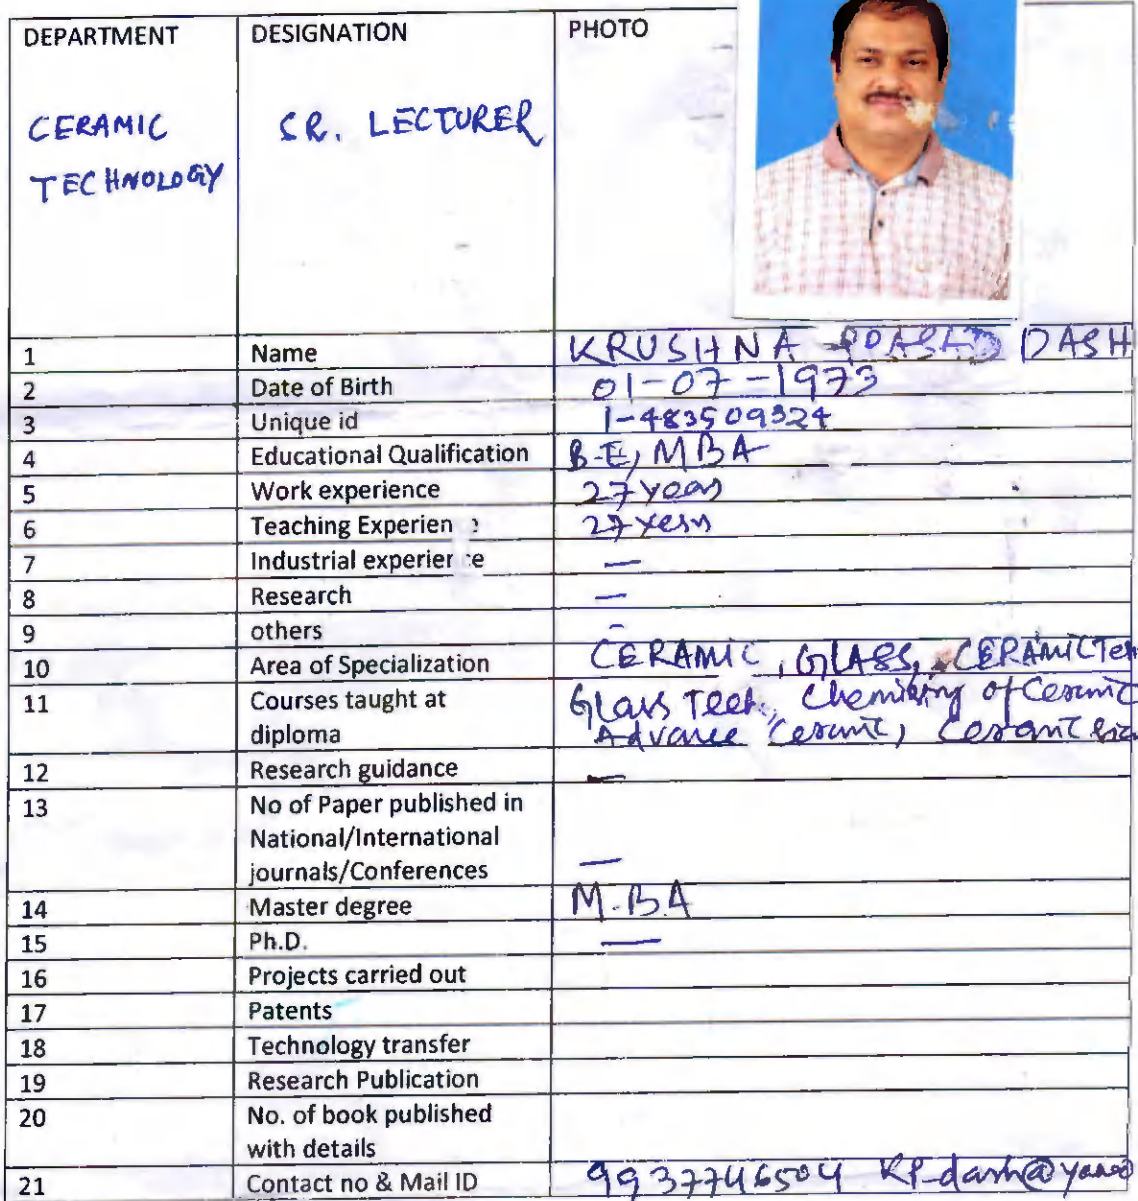 DEPARTMENT DESIGNATION PHOTO
CERAMIC SR. LECTURER
TECHNOLOGY
1 Name KRUSHNA PRASAD DASH
2 Date of Birth 01-07-1973
3 Unique id 1-483509324
4 Educational Qualification B.E, MBA
5 Work experience 27 years
6 Teaching Experien e 27 years
7 Industrial experience —
8 Research —
9 others -
10 Area of Specialization CERAMIC, GLASS, CERAMIC Tech
11 Courses taught at Glass Tech, Chemistry of Ceramic
diploma Advance Ceramic, Ceramic
12 Research guidance —
13 No of Paper published in
National/International
journals/Conferences —
14 Master degree M.B.A
15 Ph.D. —
16 Projects carried out
17 Patents
18 Technology transfer
19 Research Publication
20 No. of book published
with details
21 Contact no & Mail ID 9937746504 KP_dash@yahoo